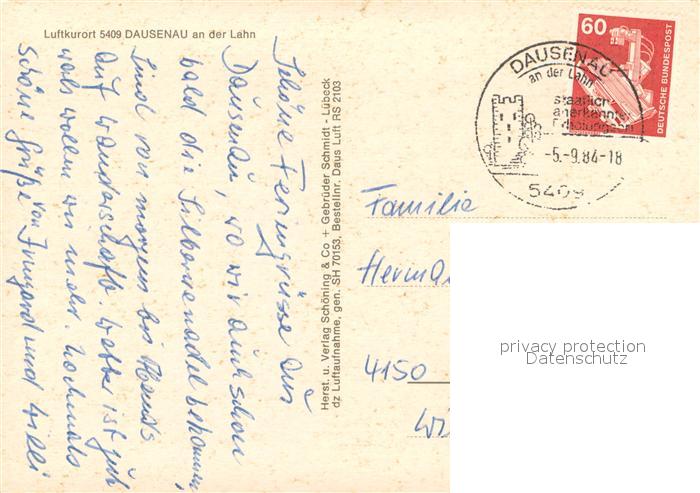 Luftkurort 5409 DAUSENAU an der Lahn
Schöne Feriengrüsse aus
Dausenau, wo wir auch schon
bald die Silbernenadel bekommen,
sind von morgens bis Abends
auf Wanderschaft. Wetter ist gut
was wollen wir mehr. Nochmals
schöne Grüße von Irmgard und Willi
Herst. u. Verlag Schöning & Co + Gebrüder Schmidt - Lübeck
- dz Luftaufnahme, gen. SH 70153, Bestellnr. Daus Luft RS 2103
60
DEUTSCHE BUNDESPOST
DAUSENAU
an der Lahn
staatlich
anerkannt
-5.-9.84-18
5409
Familie
Herma
4150
privacy protection
Datenschutz